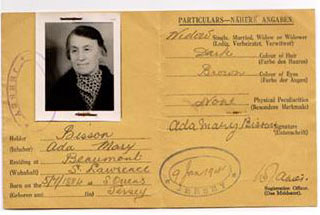 Holder
(Inhaber)
Bisson
Ada Mary
Residing at
(Wohnhaft)
Beaumont
S. Lawrence
Born on the
(Geboren am)
at
in
Jersey
PARTICULARS—NÄHERE ANGABEN
Widow Single, Married, Widow or Widower
(Ledig, Verheiratet, Verwitwet)
Dark Colour of Hair
(Farbe des Haares)
Brown Colour of Eyes
(Farbe der Augen)
None Physical Peculiarities
(Besondere Merkmale)
Ada Mary Bisson Signature
(Unterschrift)
9 Jan
JERSEY
Registration Officer.